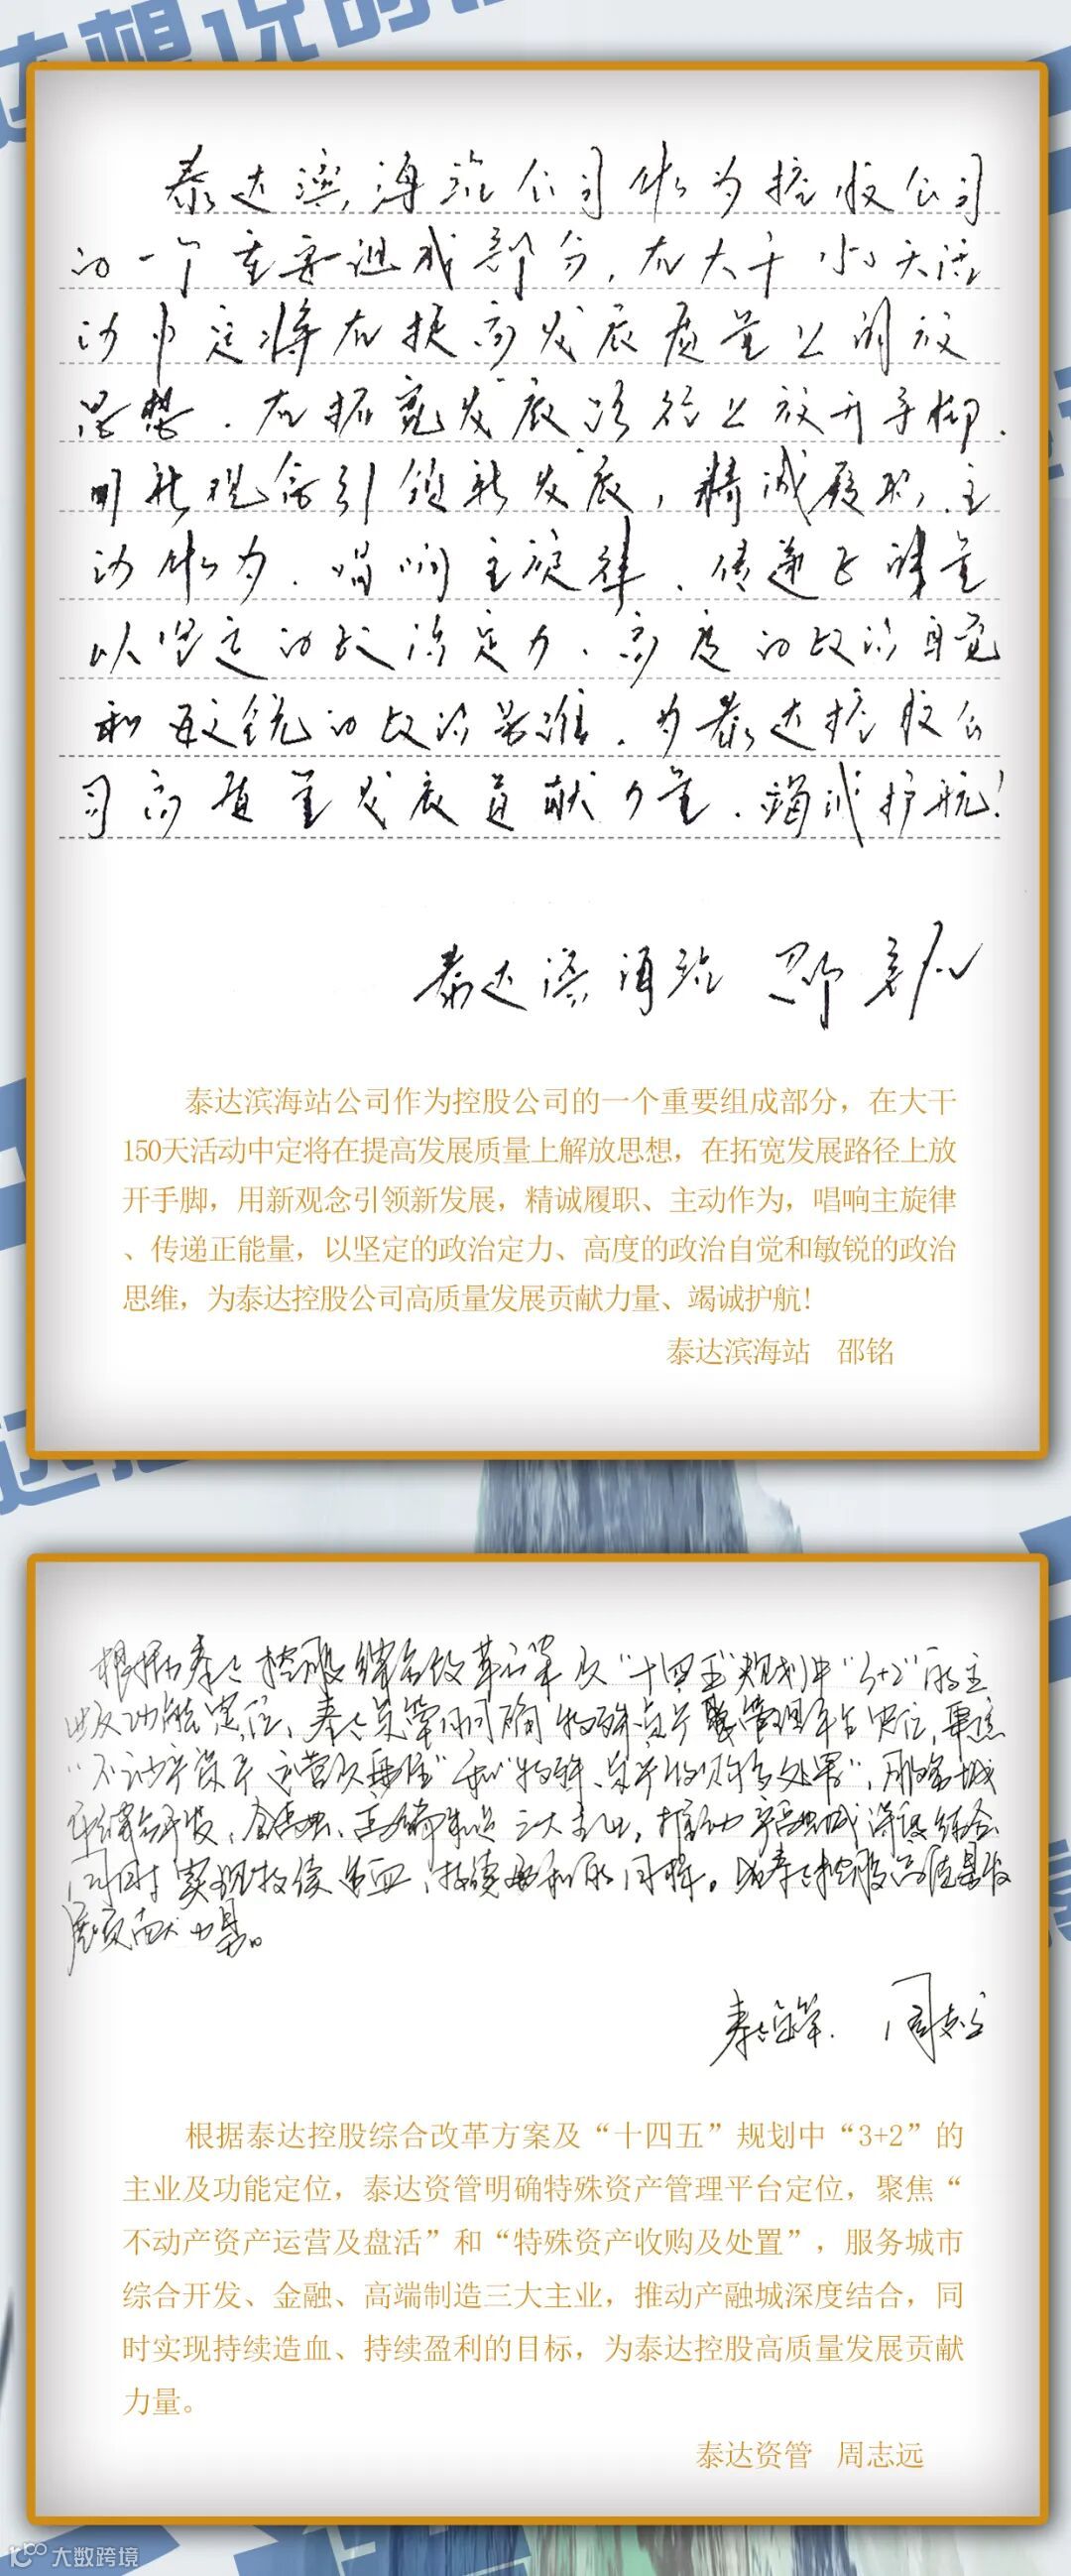 泰达滨海站公司作为控股公司
的一个重要组成部分,在大干150天活
动中定将在提高发展质量上解放
思想,在拓宽发展路径上放开手脚,
用新观念引领新发展,精诚履职、主
动作为,唱响主旋律、传递正能量
以坚定的政治定力、高度的政治自觉
和敏锐的政治思维,为泰达控股公
司高质量发展贡献力量、竭诚护航!
泰达滨海站 邵铭
泰达滨海站公司作为控股公司的一个重要组成部分,在大干
150天活动中定将在提高发展质量上解放思想,在拓宽发展路径上放
开手脚,用新观念引领新发展,精诚履职、主动作为,唱响主旋律
、传递正能量,以坚定的政治定力、高度的政治自觉和敏锐的政治
思维,为泰达控股公司高质量发展贡献力量、竭诚护航!
泰达滨海站 邵铭
根据泰达控股综合改革方案及“十四五”规划中“3+2”的主
业及功能定位,泰达资管明确特殊资产管理平台定位,聚焦
“不动产资产运营及盘活”和“特殊资产收购及处置”,服务城
市综合开发、金融、高端制造三大主业,推动产融城深度结合
同时实现持续造血、持续盈利的目标。为泰达控股高质量发
展贡献力量。
泰达资管 周志远
根据泰达控股综合改革方案及“十四五”规划中“3+2”的
主业及功能定位,泰达资管明确特殊资产管理平台定位,聚焦“
不动产资产运营及盘活”和“特殊资产收购及处置”,服务城市
综合开发、金融、高端制造三大主业,推动产融城深度结合,同
时实现持续造血、持续盈利的目标,为泰达控股高质量发展贡献
力量。
泰达资管 周志远
大数跨境